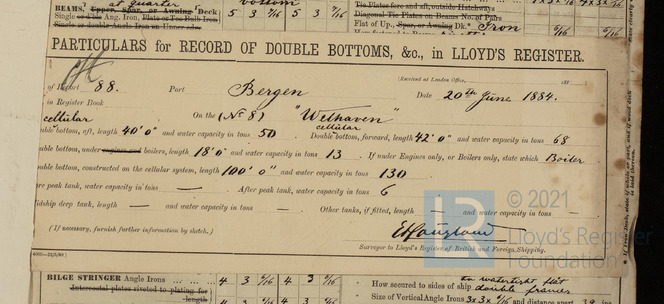 at quarter bottom
BEAMS, Upper, Spar, or Awning Deck) 5 3 7/16 5 3 7/16
Single or d'ble Ang. Iron, Plate or Tee Bulb Iron
Single or Double Angle Iron on Upper edge
Tie Plates fore and aft, outside Hatchways
Diagonal Tie Plates on Beams No. of Pairs
Flat of Up., Spar, or Awning Dk. Iron
PARTICULARS for RECORD OF DOUBLE BOTTOMS, &c., in LLOYD'S REGISTER.
(Received at London Office, 188
of Report 88. Port Bergen Date 20th June 1884.
in Register Book On the (No 8) "Welhaven"
cellular cellular
uble bottom, aft, length 40' 0" and water capacity in tons 50 Double bottom, forward, length 42' 0" and water capacity in tons 68
uble bottom, under engines and boilers, length 18' 0" and water capacity in tons 13. If under Engines only, or Boilers only, state which Boiler
uble bottom, constructed on the cellular system, length 100' 0" and water capacity in tons 130
re peak tank, water capacity in tons — After peak tank, water capacity in tons 6
idship deep tank, length — and water capacity in tons — Other tanks, if fitted, length — and water capacity in tons —
(If necessary, furnish further information by sketch.)
Surveyor to Lloyd's Register of British and Foreign Shipping.
© 2021
Lloyd's Register
Foundation
BILGE STRINGER Angle Irons 4 3 7/16 4 3 7/16
Intercostal plates riveted to plating for
length
How secured to sides of ship double frames
Size of Vertical Angle Irons 3x3x 6/16 and distance apart